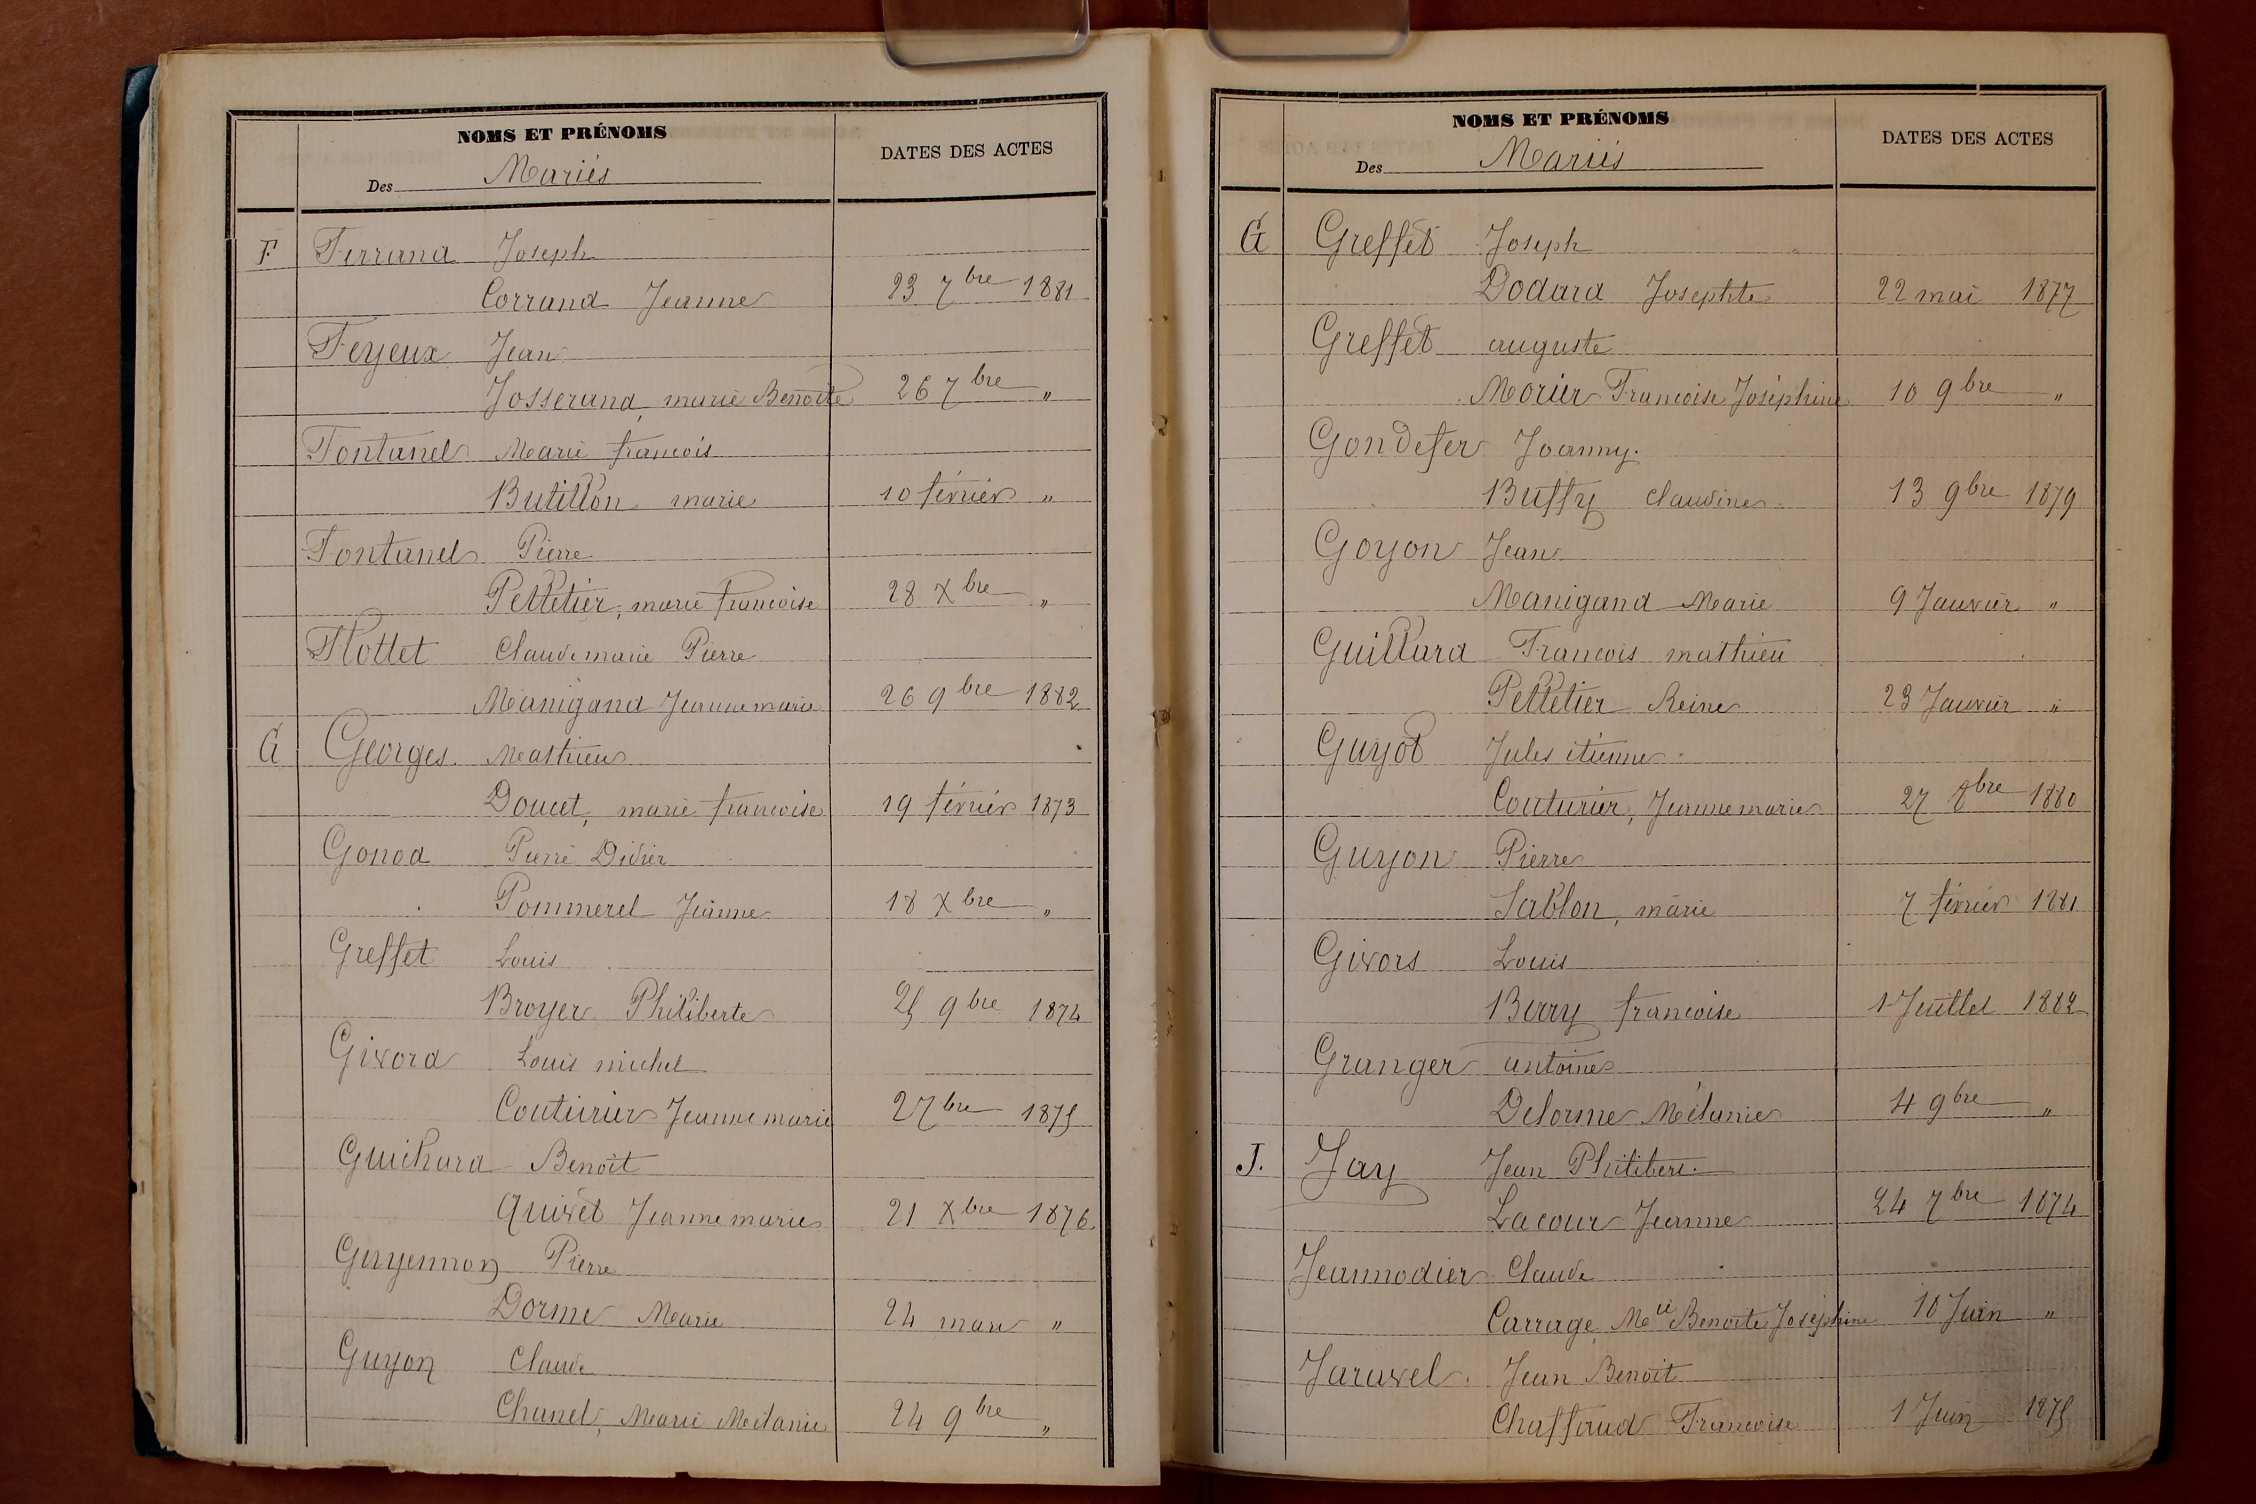 NOMS ET PRÉNOMS
Des Mariés
DATES DES ACTES
F Ferrand Joseph
Corrand Jeanne 23 7bre 1881
Feyeux Jean
Josserand, marie Benoîte 26 7bre "
Fontanel Marie françois
Butillon marie 10 février "
Fontanel Pierre
Pelletier, marie françoise 28 Xbre "
Flottet Claude marie Pierre
Manigand Jeanne marie 26 9bre 1882
G Georges Mathieu
Doucet, marie françoise 19 février 1873
Gonod Pierre Didier
Pommerel Jeanne 18 Xbre "
Greffet Louis
Broyer Philiberte 25 9bre 1874
Givord Louis michel
Couturier Jeanne marie 27bre 1875
Guichard Benoît
Quivet Jeanne marie 21 Xbre 1876
Guyennon Pierre
Dorme Marie 24 mars "
Guyon Claude
Chanel, Marie Mélanie 24 9bre "
NOMS ET PRÉNOMS
Des Mariés
DATES DES ACTES
G Greffet Joseph
Dodard Josephte 22 mai 1877
Greffet auguste
Morier Françoise Joséphine 10 9bre "
Gondefer Joanny.
Buffy Claudine 13 9bre 1879
Goyon Jean
Manigand Marie 9 Janvier "
Guillard François mathieu
Pelletier Reine 23 Janvier "
Guyot Jules étienne
Couturier, Jeanne marie 27 bre 1880
Guyon Pierre
Sablon, marie 7 février 1881
Givors Louis
Berry françoise 1 Juillet 1882
Granger antoine
Delorme Mélanie 4 9bre "
J. Jay Jean Philibert.
Lacour Jeanne 24 7bre 1874
Jeannodier Claude
Carrage Mie Benoîte Joséphine 10 Juin "
Jaravel. Jean Benoît
Chaffaud Françoise 1 Juin 1875